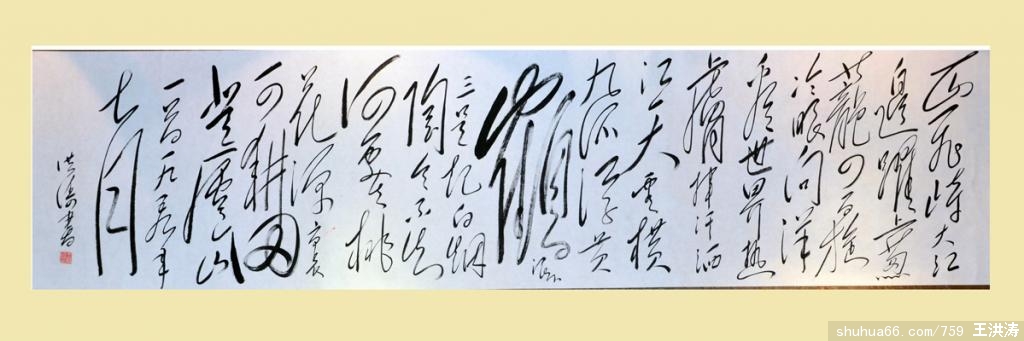 一山飞峙大江
边跃上葱
茏四百旋
冷眼向洋
看世界热
膚挥汗洒
江天雲横
九派浮黄
鹤浪下
三吴起白烟
陶令不知
何处去桃
花源里
可耕田
登庐山
一九五九年
七月
洪涛书
shuhua66.com/759 王洪涛